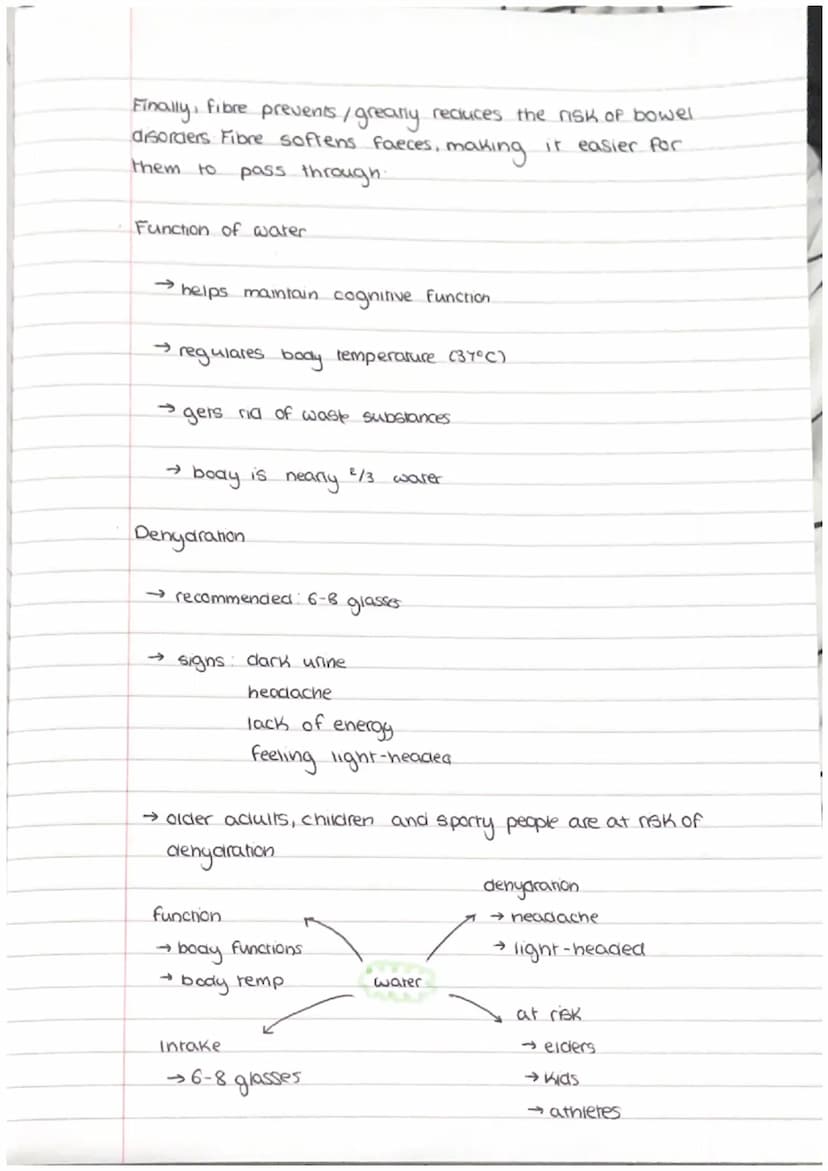 Finally, fibre prevents/greatly reduces the risk of bowel
disorders. Fibre softens faeces, making it easier for
them to pass through.
Function of water
→ helps maintain cognitive function
→ regulates body temperature (37°C)
→ gets rid of waste substances
→ body is nearly 2/3 water
Dehydration
→ recommended: 6-8 glasses
→ signs: dark urine
headache
lack of energy
feeling light-headed
→ older adults, children and sporty people are at risk of
dehydration
function
→ body functions
→ body temp
dehydration
→ headache
→ light-headed
water
Intake
→ 6-8 glasses
at risk
→ elders
→ kids
→ athletes